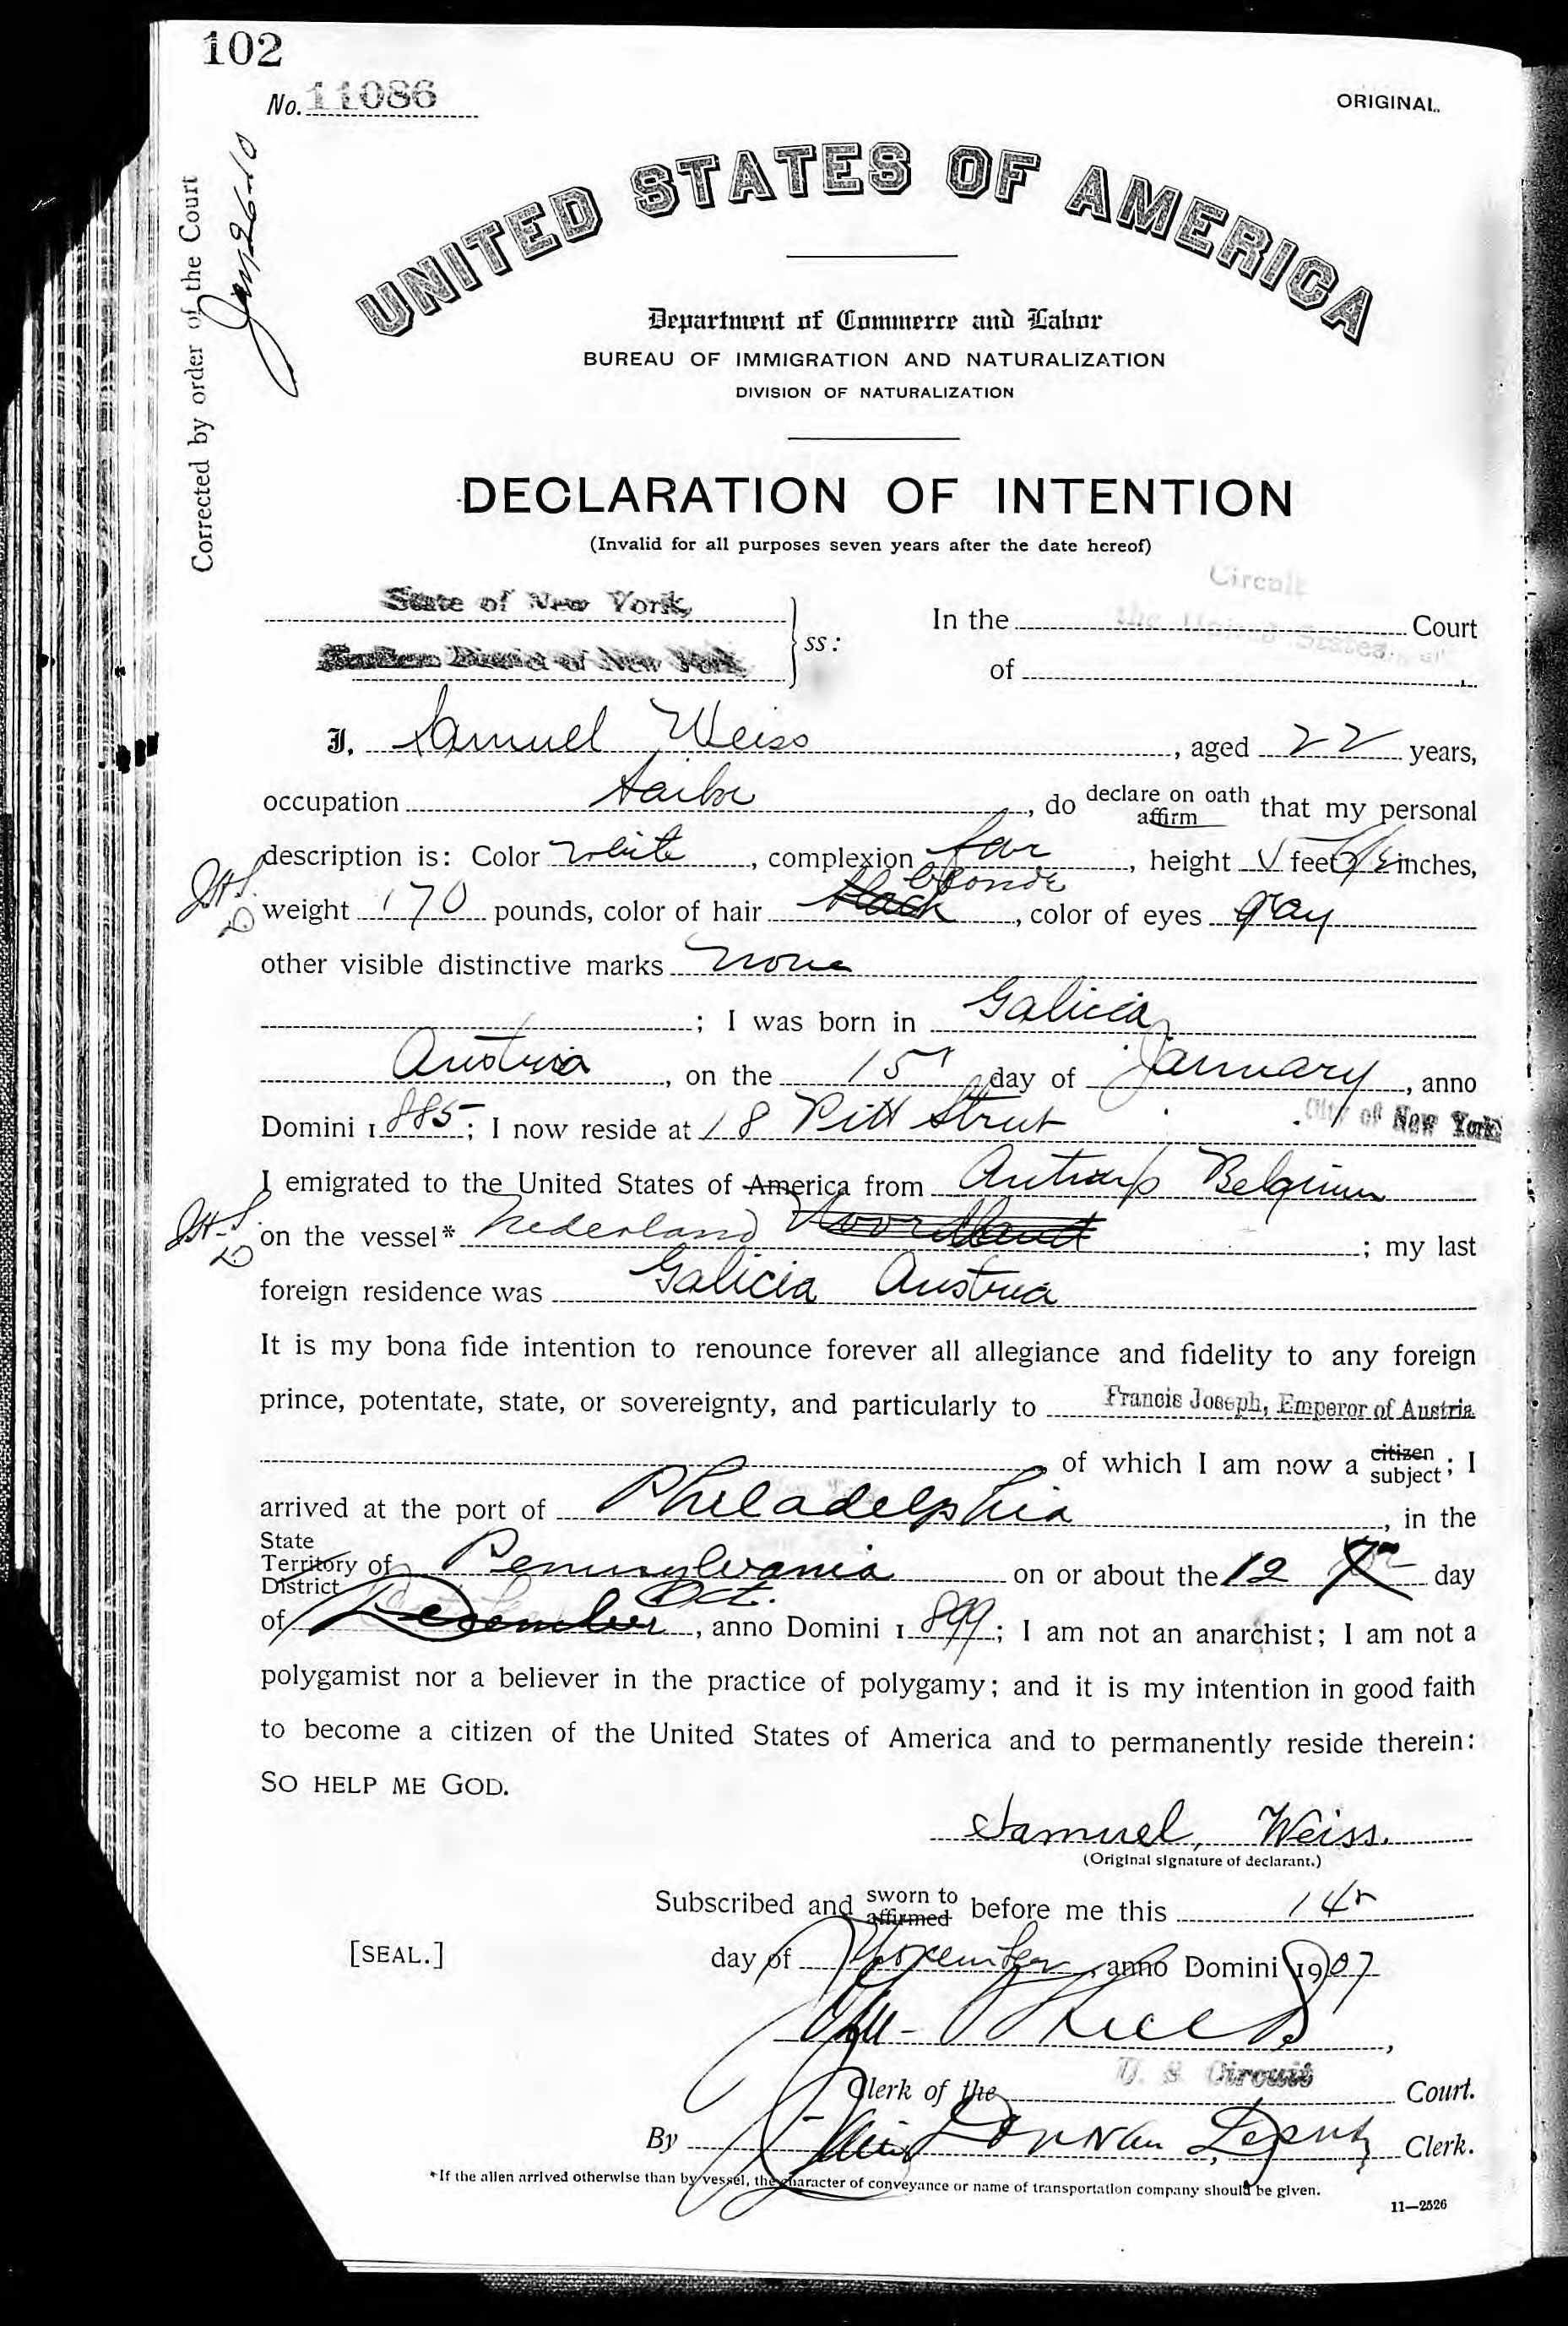 102
No. 11086
ORIGINAL.
Corrected by order of the Court
Jany 26-10
UNITED STATES OF AMERICA
Department of Commerce and Labor
BUREAU OF IMMIGRATION AND NATURALIZATION
DIVISION OF NATURALIZATION
DECLARATION OF INTENTION
(Invalid for all purposes seven years after the date hereof)
State of New York,
Southern District of New York
ss:
Circuit
In the the United States Court
of
I, Samuel Weiss, aged 22 years,
occupation tailor, do declare on oath affirm that my personal
description is: Color white, complexion fair, height 5 feet inches,
weight 170 pounds, color of hair black blonde, color of eyes gray
other visible distinctive marks none
; I was born in Galicia
Austria, on the 15 day of January, anno
Domini 1885; I now reside at 18 Pitt Street City of New York
I emigrated to the United States of America from Antwerp Belgium
on the vessel* Nederland Noordland; my last
foreign residence was Galicia Austria
It is my bona fide intention to renounce forever all allegiance and fidelity to any foreign
prince, potentate, state, or sovereignty, and particularly to Francis Joseph, Emperor of Austria
of which I am now a citizen subject; I
arrived at the port of Philadelphia, in the
State Territory District of Pennsylvania on or about the 12 day
of December Oct., anno Domini 1899; I am not an anarchist; I am not a
polygamist nor a believer in the practice of polygamy; and it is my intention in good faith
to become a citizen of the United States of America and to permanently reside therein:
SO HELP ME GOD.
Samuel Weiss.
(Original signature of declarant.)
Subscribed and sworn to affirmed before me this 14
[SEAL.] day of November, anno Domini 1907
Clerk of the U. S. Circuit Court.
By Donovan, Deputy Clerk.
*If the alien arrived otherwise than by vessel, the character of conveyance or name of transportation company should be given.
11—2526